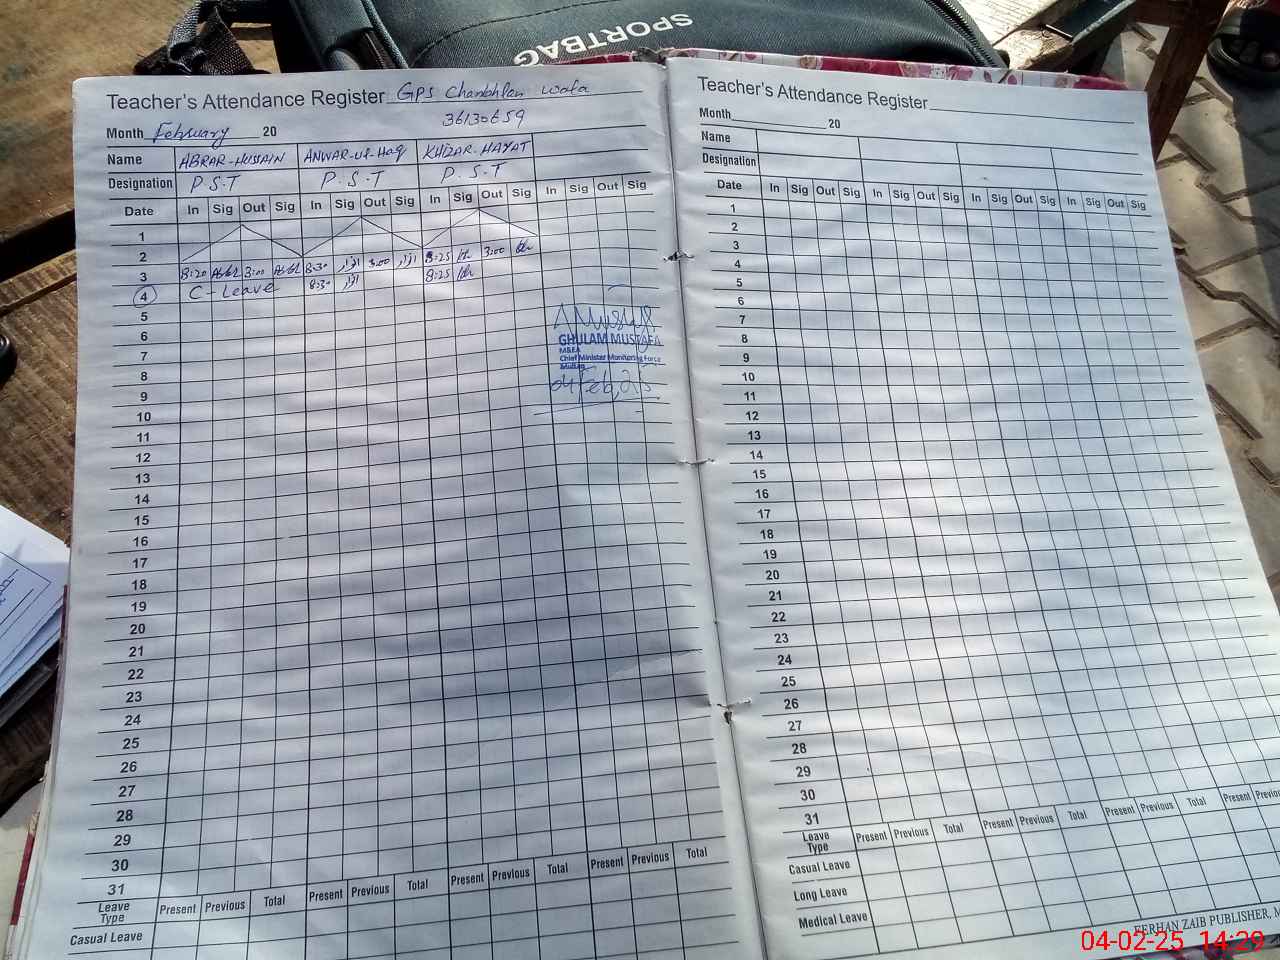 SPORTBAG
Teacher's Attendance Register GPS Chanbhlan Wala
36130659
Month February 20
Name ABRAR-HUSSAIN ANWAR-UL-HAQ KHIZAR-HAYAT
Designation P.S.T P.S.T P.S.T
Date In Sig Out Sig In Sig Out Sig In Sig Out Sig In Sig Out Sig
1
2
3 8:20 3:00 8:30 3:00 8:25 3:00
4 C-Leave 8:30 8:25
5
6
7
8
9
10
11
12
13
14
15
16
17
18
19
20
21
22
23
24
25
26
27
28
29
30
31
Leave Type Present Previous Total Present Previous Total Present Previous Total Present Previous Total
Casual Leave
GHULAM MUSTAFA
MBEA
Chief Minister Monitoring Force
Multan
04 Feb, 25
Teacher's Attendance Register
Month 20
Name
Designation
Date In Sig Out Sig In Sig Out Sig In Sig Out Sig In Sig Out Sig
1
2
3
4
5
6
7
8
9
10
11
12
13
14
15
16
17
18
19
20
21
22
23
24
25
26
27
28
29
30
31
Leave Type Present Previous Total Present Previous Total Present Previous Total Present Previous
Casual Leave
Long Leave
Medical Leave
FERHAN ZAIB PUBLISHER, M
04-02-25 14:29